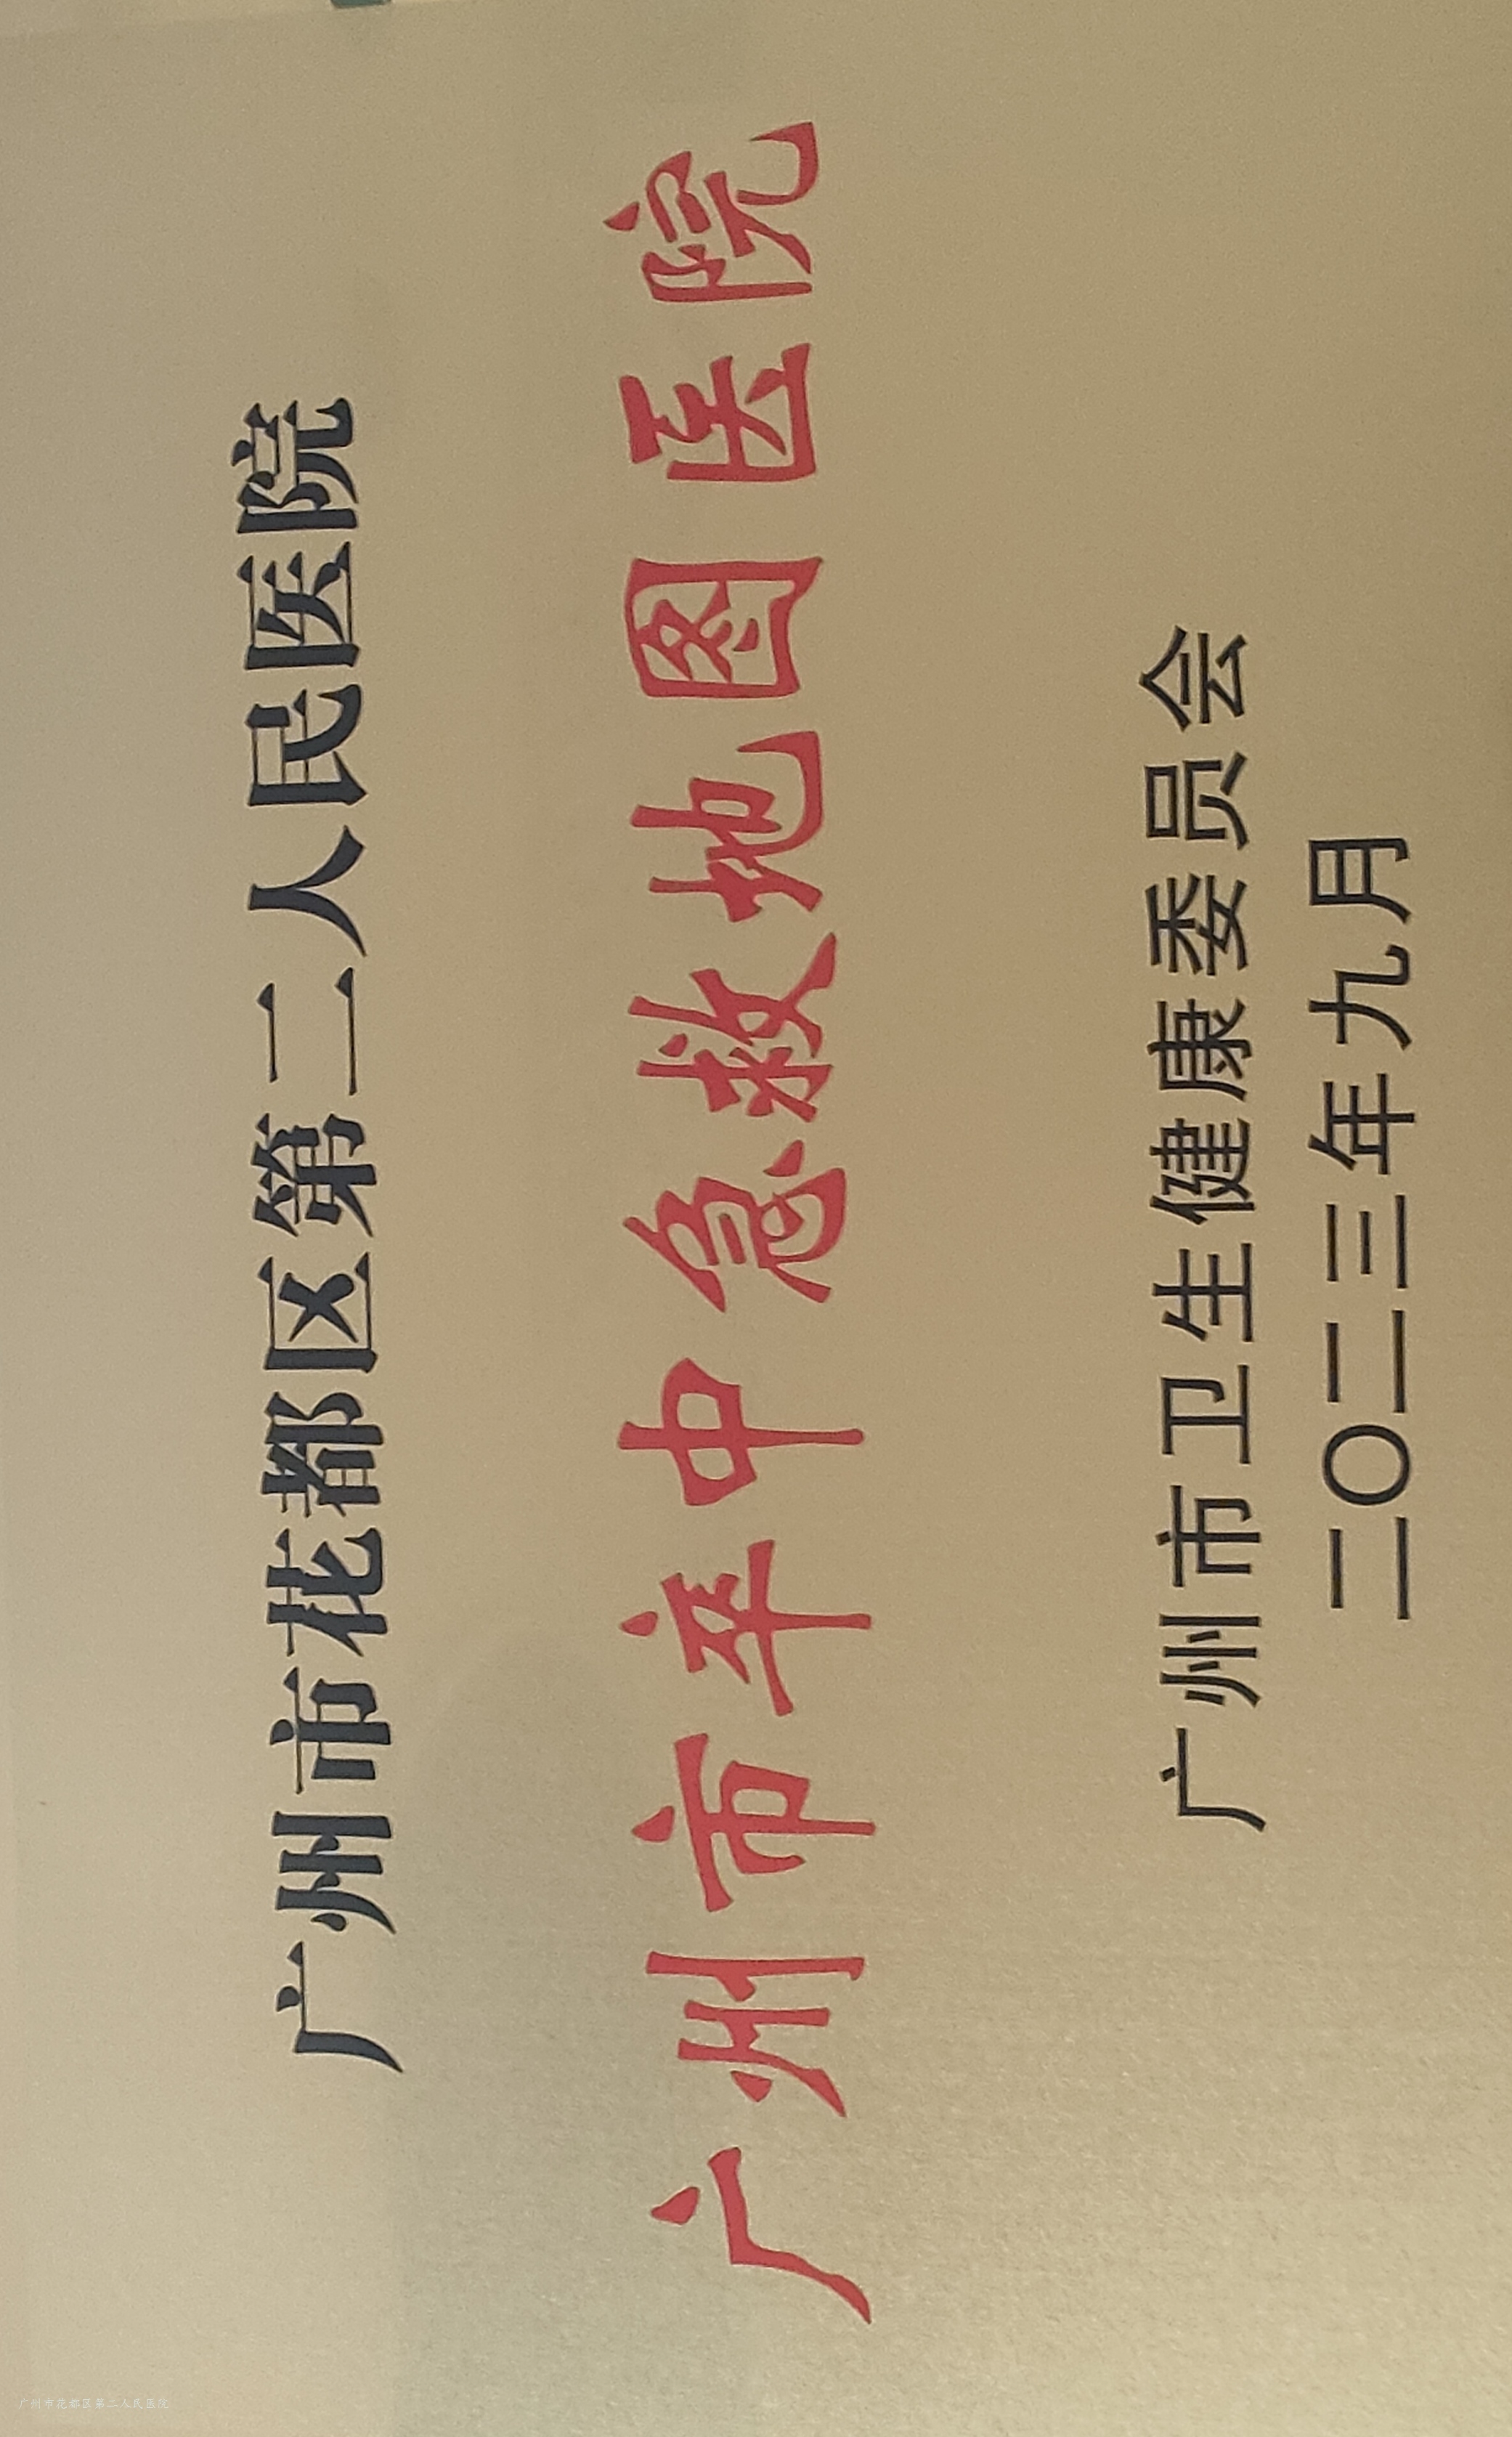 广州市花都区第二人民医院
广州市卒中急救地图医院
广州市卫生健康委员会
二〇二三年九月
广州市花都区第二人民医院